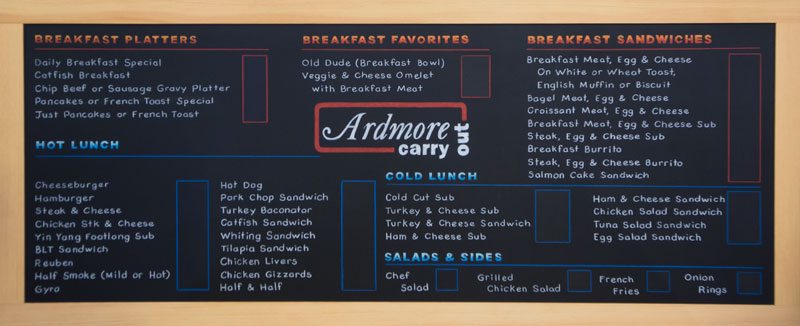 BREAKFAST PLATTERS
Daily Breakfast Special
Catfish Breakfast
Chip Beef or Sausage Gravy Platter
Pancakes or French Toast Special
Just Pancakes or French Toast
BREAKFAST FAVORITES
Old Dude (Breakfast Bowl)
Veggie & Cheese Omelet
with Breakfast Meat
BREAKFAST SANDWICHES
Breakfast Meat, Egg & Cheese
On White or Wheat Toast,
English Muffin or Biscuit
Bagel Meat, Egg & Cheese
Croissant Meat, Egg & Cheese
Breakfast Meat, Egg & Cheese Sub
Steak, Egg & Cheese Sub
Breakfast Burrito
Steak, Egg & Cheese Burrito
Salmon Cake Sandwich
Ardmore
carry out
HOT LUNCH
Cheeseburger
Hamburger
Steak & Cheese
Chicken Stk & Cheese
Yin Yang Footlong Sub
BLT Sandwich
Reuben
Half Smoke (Mild or Hot)
Gyro
Hot Dog
Pork Chop Sandwich
Turkey Baconator
Catfish Sandwich
Whiting Sandwich
Tilapia Sandwich
Chicken Livers
Chicken Gizzards
Half & Half
COLD LUNCH
Cold Cut Sub
Turkey & Cheese Sub
Turkey & Cheese Sandwich
Ham & Cheese Sub
Ham & Cheese Sandwich
Chicken Salad Sandwich
Tuna Salad Sandwich
Egg Salad Sandwich
SALADS & SIDES
Chef
Salad
Grilled
Chicken Salad
French
Fries
Onion
Rings